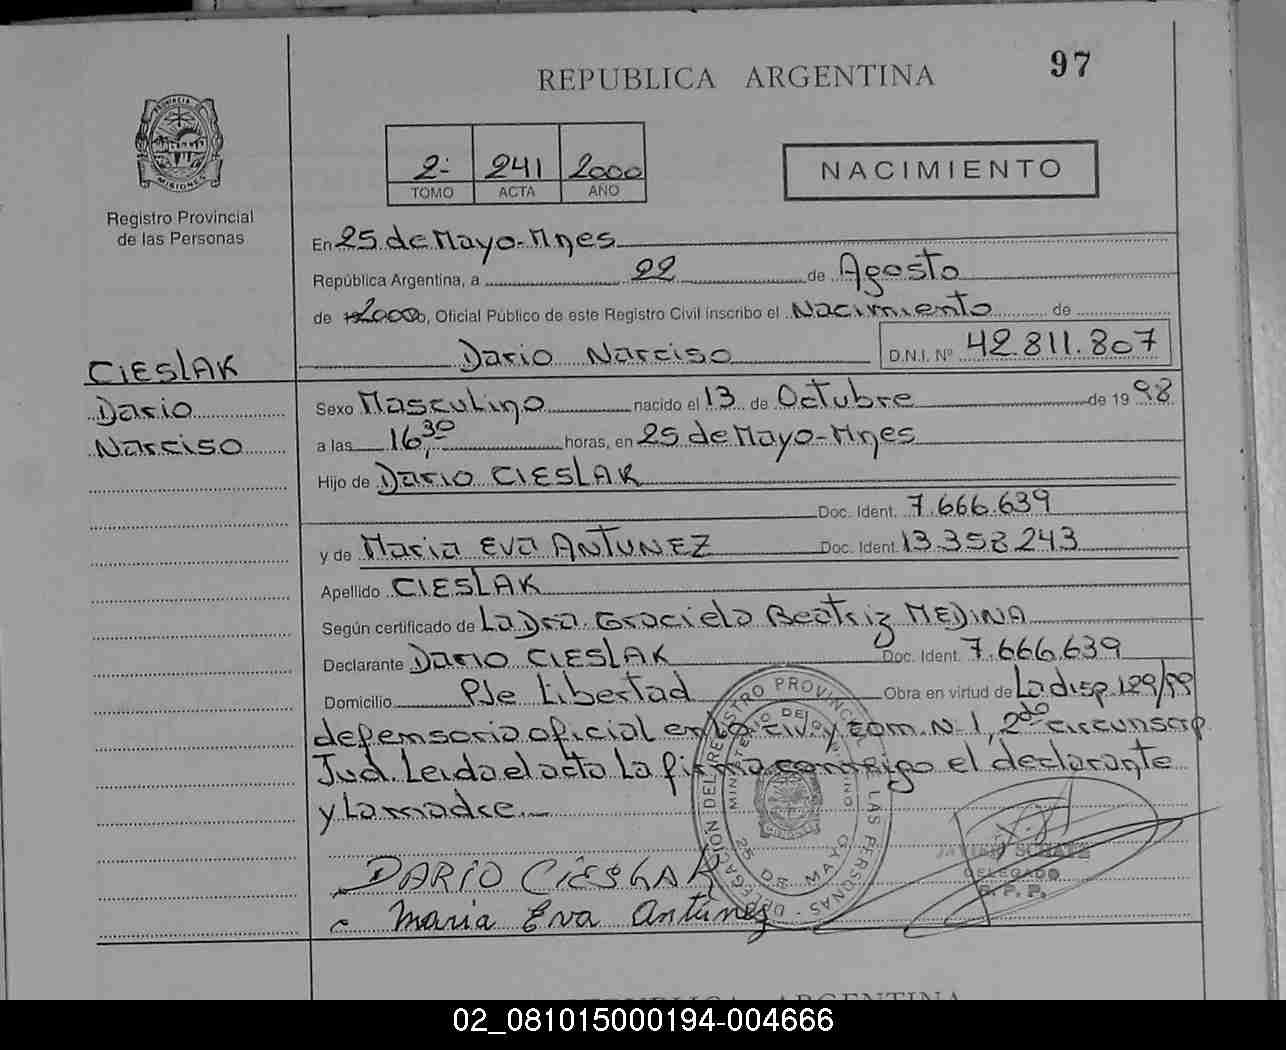 97
REPUBLICA ARGENTINA
PROVINCIA D
MISIONES
Registro Provincial
de las Personas
2- 241 2000
TOMO ACTA AÑO
NACIMIENTO
En 25 de Mayo-Mnes
República Argentina, a 22 de Agosto
de 2000, Oficial Público de este Registro Civil inscribo el Nacimiento de
Dario Narciso D.N.I. Nº 42.811.807
CIESLAK
Dario
Narciso
Sexo Masculino nacido el 13 de Octubre de 1998
a las 16,30 horas, en 25 de Mayo-Mnes
Hijo de Dario CIESLAK
Doc. Ident. 7.666.639
y de Maria Eva ANTUNEZ Doc. Ident. 13.358.243
Apellido CIESLAK
Según certificado de La Dra. Graciela Beatriz MEDINA
Declarante Dario CIESLAK Doc. Ident. 7.666.639
Domicilio Pje Libertad Obra en virtud de La disp. 129/99
defensoria oficial en Lo civ. y com. N- 1, 2do circunscrip
Jud. Leida el acta La firma conmigo el declarante
y La madre.
DELEGACION DEL REGISTRO PROVINCIAL LAS PERSONAS
MINISTERIO DE GOBIERNO
25 DE MAYO
DARIO CIESLAK
Maria Eva Antúnez
DELEGADO
R. P. P.
REPUBLICA ARGENTINA
02_081015000194-004666